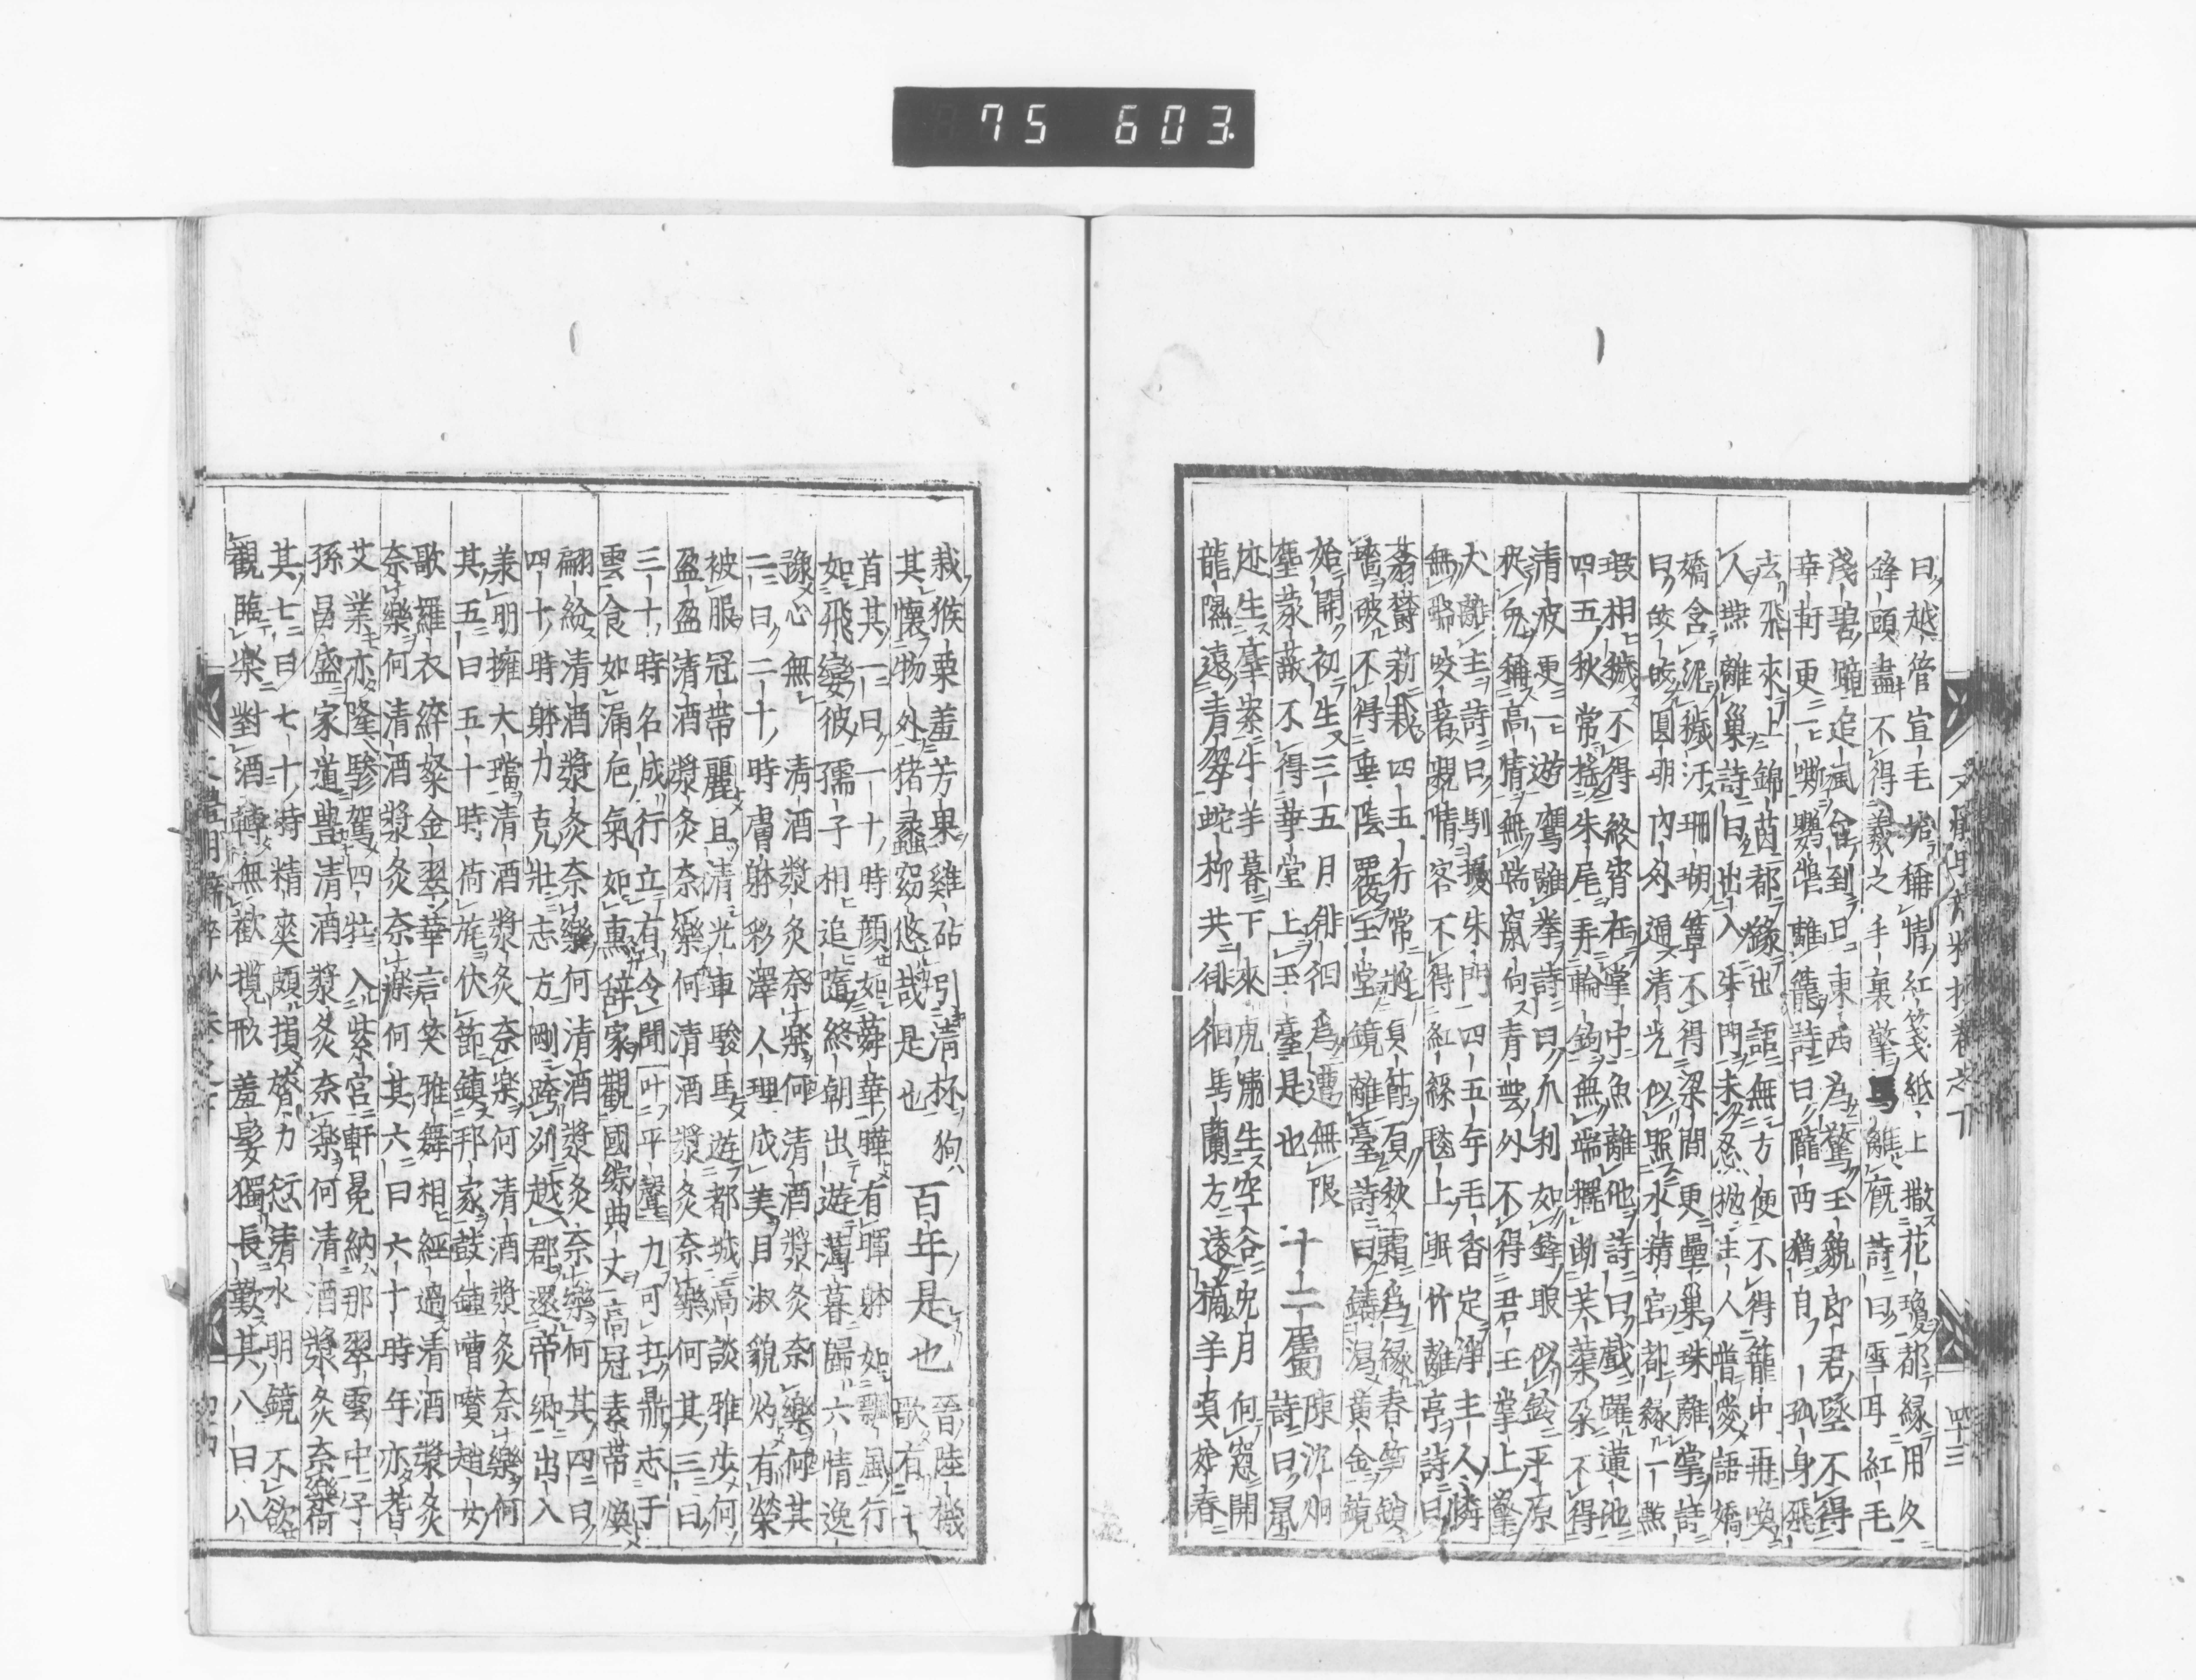 75 603
曰越管宣毛始稱情紅箋紙上撒花瓊都緣用久
鋒頭盡不得羲之手裏擎馬離廐詩曰雪耳紅毛
淺碧蹄追風曾到日東西為驚玉貌郎君墜不得
華軒更一嘶鸚鵡離籠詩曰隴西獨自一孤身飛
去飛來上錦茵都緣出語無方便不得籠中再喚
人燕離巢詩曰出入朱門未忍拋主人常愛語嬌
嬌含泥穢汙珊瑚簟不得梁間更壘巢珠離掌詩
曰皎皎圓明內外通清光似照水精宮都緣一點
瑕相穢不得終宵在掌中魚離池詩曰戲躍蓮池
四五秋常搖朱尾弄輪鉤無端擺斷芙蓉朵不得
清波更一遊鷹離拳詩曰爪利如鋒眼似鈴平原
捉兔稱高情無端竄向青雲外不得君王掌上擎
犬離主詩曰馴擾朱門四五年毛香足淨主人憐
無端咬著親情客不得紅絲毯上眠竹離亭詩曰
蓊鬱新栽四五行常將貞節負秋霜為緣春笋鑽
墻破不得垂陰覆玉堂鏡離臺詩曰鑄瀉黃金鏡
始開初生三五月徘徊為遭無限
塵蒙蔽不得華堂上玉臺是也 十二屬 陳沈炯詩曰鼠
迹生塵案牛羊暮下來虎嘯生空谷兔月向窗開
龍隰遠青翠蛇柳共徘徊馬蘭方遠摘羊負始春
四十三
栽猴栗羞芳果雞砧引清杯狗
其懷物外猪蠡窈悠哉是也 百年是也 晉陸機歌有十
首其一曰一十時顏如蕣華曄有暉躰如飄風行
如飛孌彼孺子相追隨終朝出遊薄暮歸六情逸
豫心無 清酒漿炙奈樂何清酒漿炙奈樂何其
二曰二十時膚躰彩澤人理成美目淑貌灼有榮
被服冠帶麗且清光車駿馬遊都城高談雅步何
盈盈清酒漿炙奈樂何清酒漿炙奈樂何其三曰
三十時名成行立有令聞叶平聲力可扛鼎志于
雲食如漏卮氣如熏辭家觀國綜典丈高冠素帶煥
翩紛清酒漿炙奈樂何清酒漿炙奈樂何其四曰
四十時躰力克壯志方剛跨列越郡還帝鄉出入
羕明擁大璫清酒漿炙奈樂何清酒漿炙奈樂何
其五曰五十時荷旄伏節鎮邦家鼓鍾嘈囋趙女
歌羅衣綷粲金翠華言笑雅舞相經過清酒漿炙
奈樂何清酒漿炙奈樂何其六曰六十時年亦耆
艾業亦隆驂駕四牡入紫宮軒冕納那翠雲中子
孫昌盛家道豊清酒漿炙奈樂何清酒漿炙奈樂何
其七曰七十時精爽頗損膂力愆清水明鏡不欲
觀臨樂對酒轉無歡攬形羞髮獨長歎其八曰八